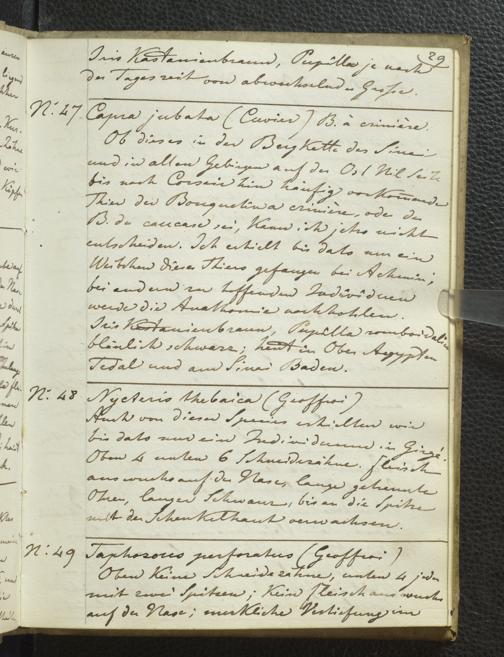 29
Iris Kastanienbraun, Pupille je nach
der Tageszeit von abwechselnder Grösse.
N: 47 Capra jubata (Cuvier) B. à crinière.
Ob dieses in der Bergkette des Sinai
und in allen Gebirgen auf der Ost Nil Seite
bis nach Cosseir hin häufig vorkomende
Thier der Bouquetin a crinière, oder der
B. du caucase sei, kann ich jetzt nicht
entscheiden. Ich erhielt bis dato nur ein
Weibchen dieses Thiers gefangen bei Achmim,
bei andern zu hoffenden Individuen
werde die Anathomie nachhohlen.
Iris Kastanienbraun, Pupille romboidalin
bläulich schwarz; in Ober Aegypten
Tedal und am Sinai Baden.
N: 48 Nycteris thebaica (Geoffroi)
Auch von dieser Species erhielten wir
bis dato nur ein Individuum in Girgé.
Oben 4 unten 6 Schneidezähne. Fleisch
auswuchs auf der Nase, lange getrennte
Ohren, langer Schwanz, bis an die Spitze
mit der Schenkelhaut verwachsen.
N: 49 Taphozous perforatus (Geoffroi)
Oben Keine Schneidezähne, unten 4 jeder
mit zwei Spitzen; Kein Fleischauswuchs
auf der Nase; merkliche Vertiefung im